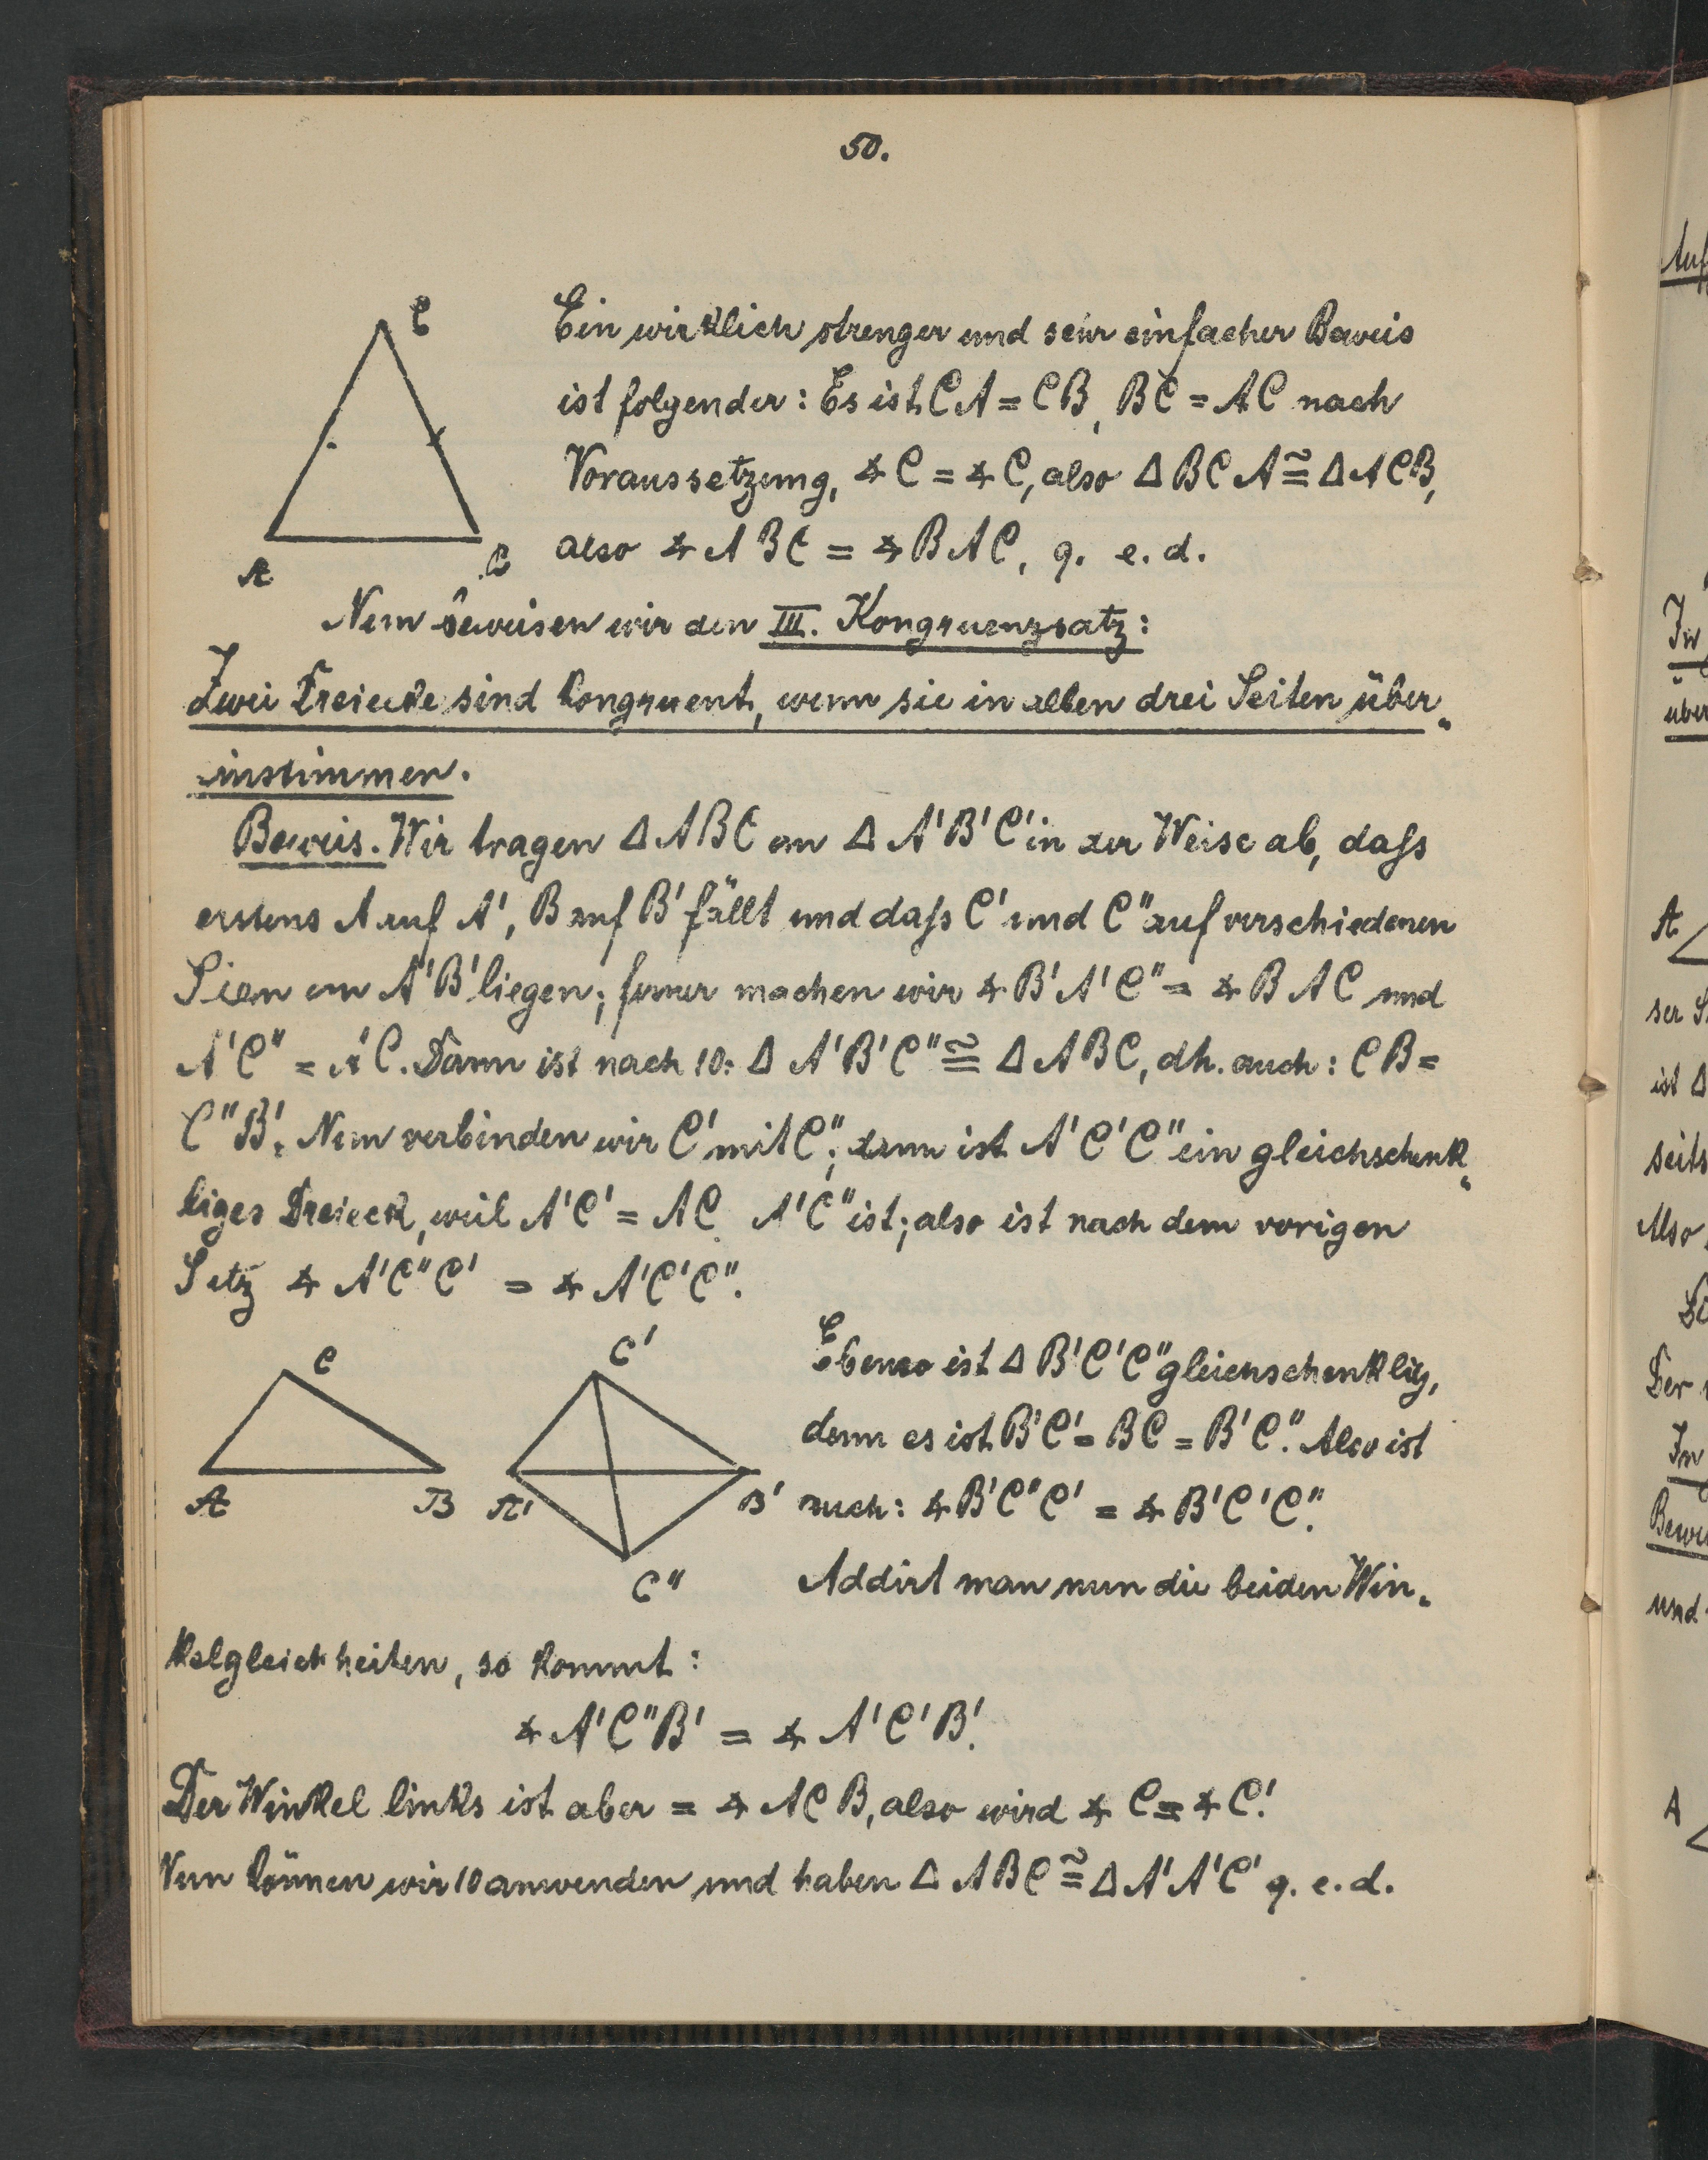 50.
C
Ein wirklich strenger und sehr einfacher Beweis
ist folgender: Es ist CA = CB, BC = AC nach
Voraussetzung, ∢ C = ∢ C, also Δ BCA ≅ Δ ACB,
also ∢ ABC = ∢ BAC, q. e. d.
A
Nun beweisen wir den III. Kongruenzsatz:
Zwei Dreiecke sind kongruent, wenn sie in allen drei Seiten über„
einstimmen.
Beweis. Wir tragen Δ ABC an Δ A'B'C' in der Weise ab, dafs
erstens A auf A', B auf B' fällt und dafs C' und C" auf verschiedenen
an A'B' liegen; ferner machen wir ∢ B'A'C" = ∢ BAC und
A'C" = A'C. Dann ist nach 10: Δ A'B'C" ≅ Δ ABC, dh. auch: CB =
C"B'. Nun verbinden wir C' mit C"; dann ist A'C'C" ein gleichschenk„
liges Dreieck, weil A'C' = AC A'C" ist; also ist nach dem vorigen
Satz ∢ A'C"C' = ∢ A'C'C".
C
A B
C'
A' B'
C"
Ebenso ist Δ B'C'C" gleichschenklig,
denn es ist B'C' = BC = B'C". Also ist
auch: ∢ B'C"C' = ∢ B'C'C".
Addirt man nun die beiden Win„
kelgleichheiten, so kommt:
∢ A'C"B' = ∢ A'C'B'.
Der Winkel links ist aber = ∢ ACB, also wird ∢ C = ∢ C'.
Nun können wir 10 anwenden und haben Δ ABC ≅ Δ A'A'C' q. e. d.
A
ser
ist Δ
seits
Also
Der
In
und
A